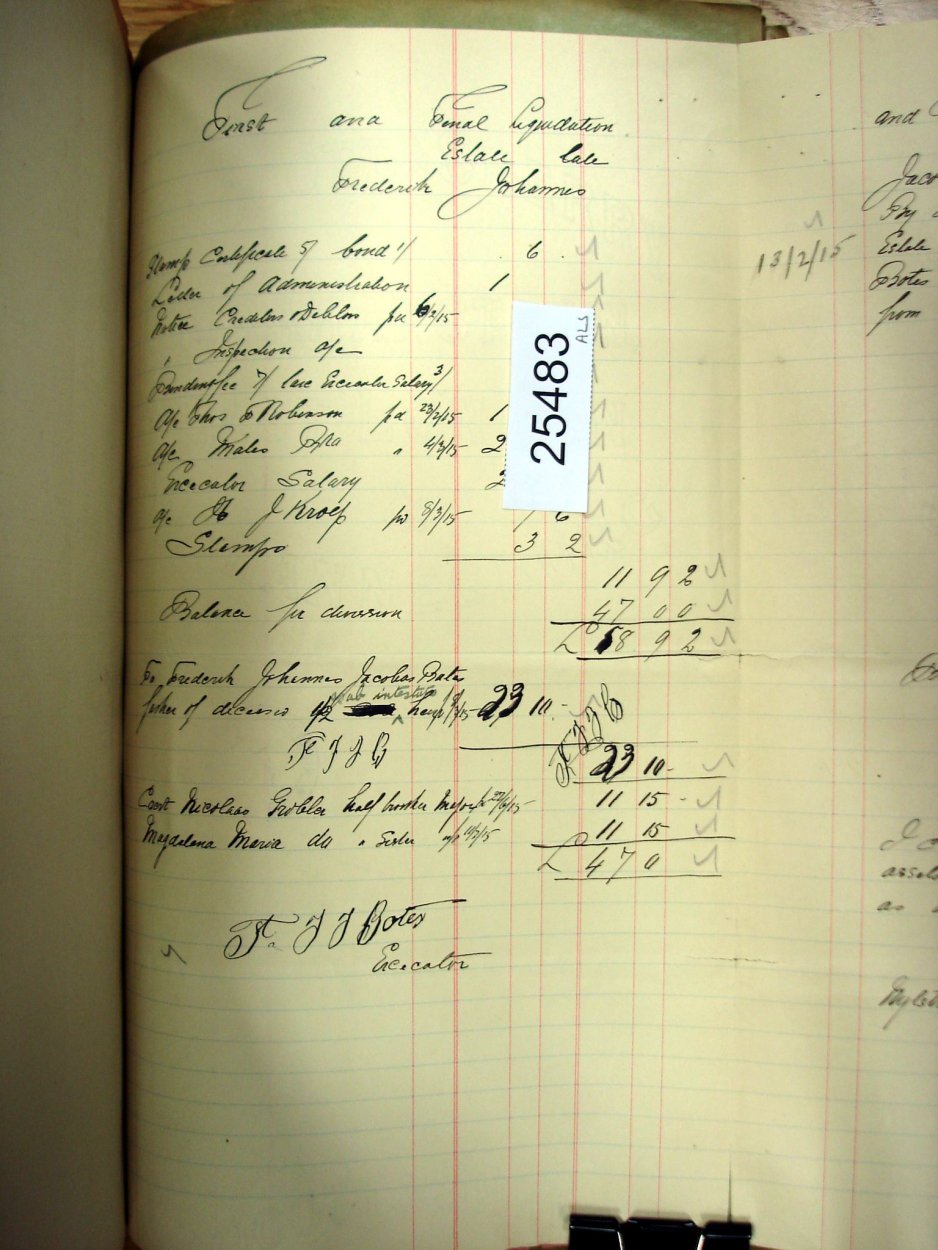 First and Final Liquidation
Estate late
Frederik Johannes
Stamp Certificate 5/ bond 1/ 6
Letter of Administration 1
Notice Creditors & Debtors pd 6/3/15
" Inspection a/c
late Executor Salary 3/
a/c Thos Robinson pd 23/2/15 1
a/c Males " 4/3/15 2
Executor Salary 2
a/c J Kroep pd 8/3/15 1 6
Stamps 3 2
11 9 2
Balance for division 47 0 0
£ 58 9 2
To Frederik Johannes Jacobus Botes
ab intestato
father of deceased 1/2 heir 23 10 -
F J J B
F J J B
23 10 -
Coert Nicolaas Grobler half brother Major 11 15 -
Magdalena Maria do " Sister 11 15
£ 47 0
F. J J Botes
Executor
25483
ALS
and
Jaco
By
13/2/15 Estate
Botes
from
assets
as